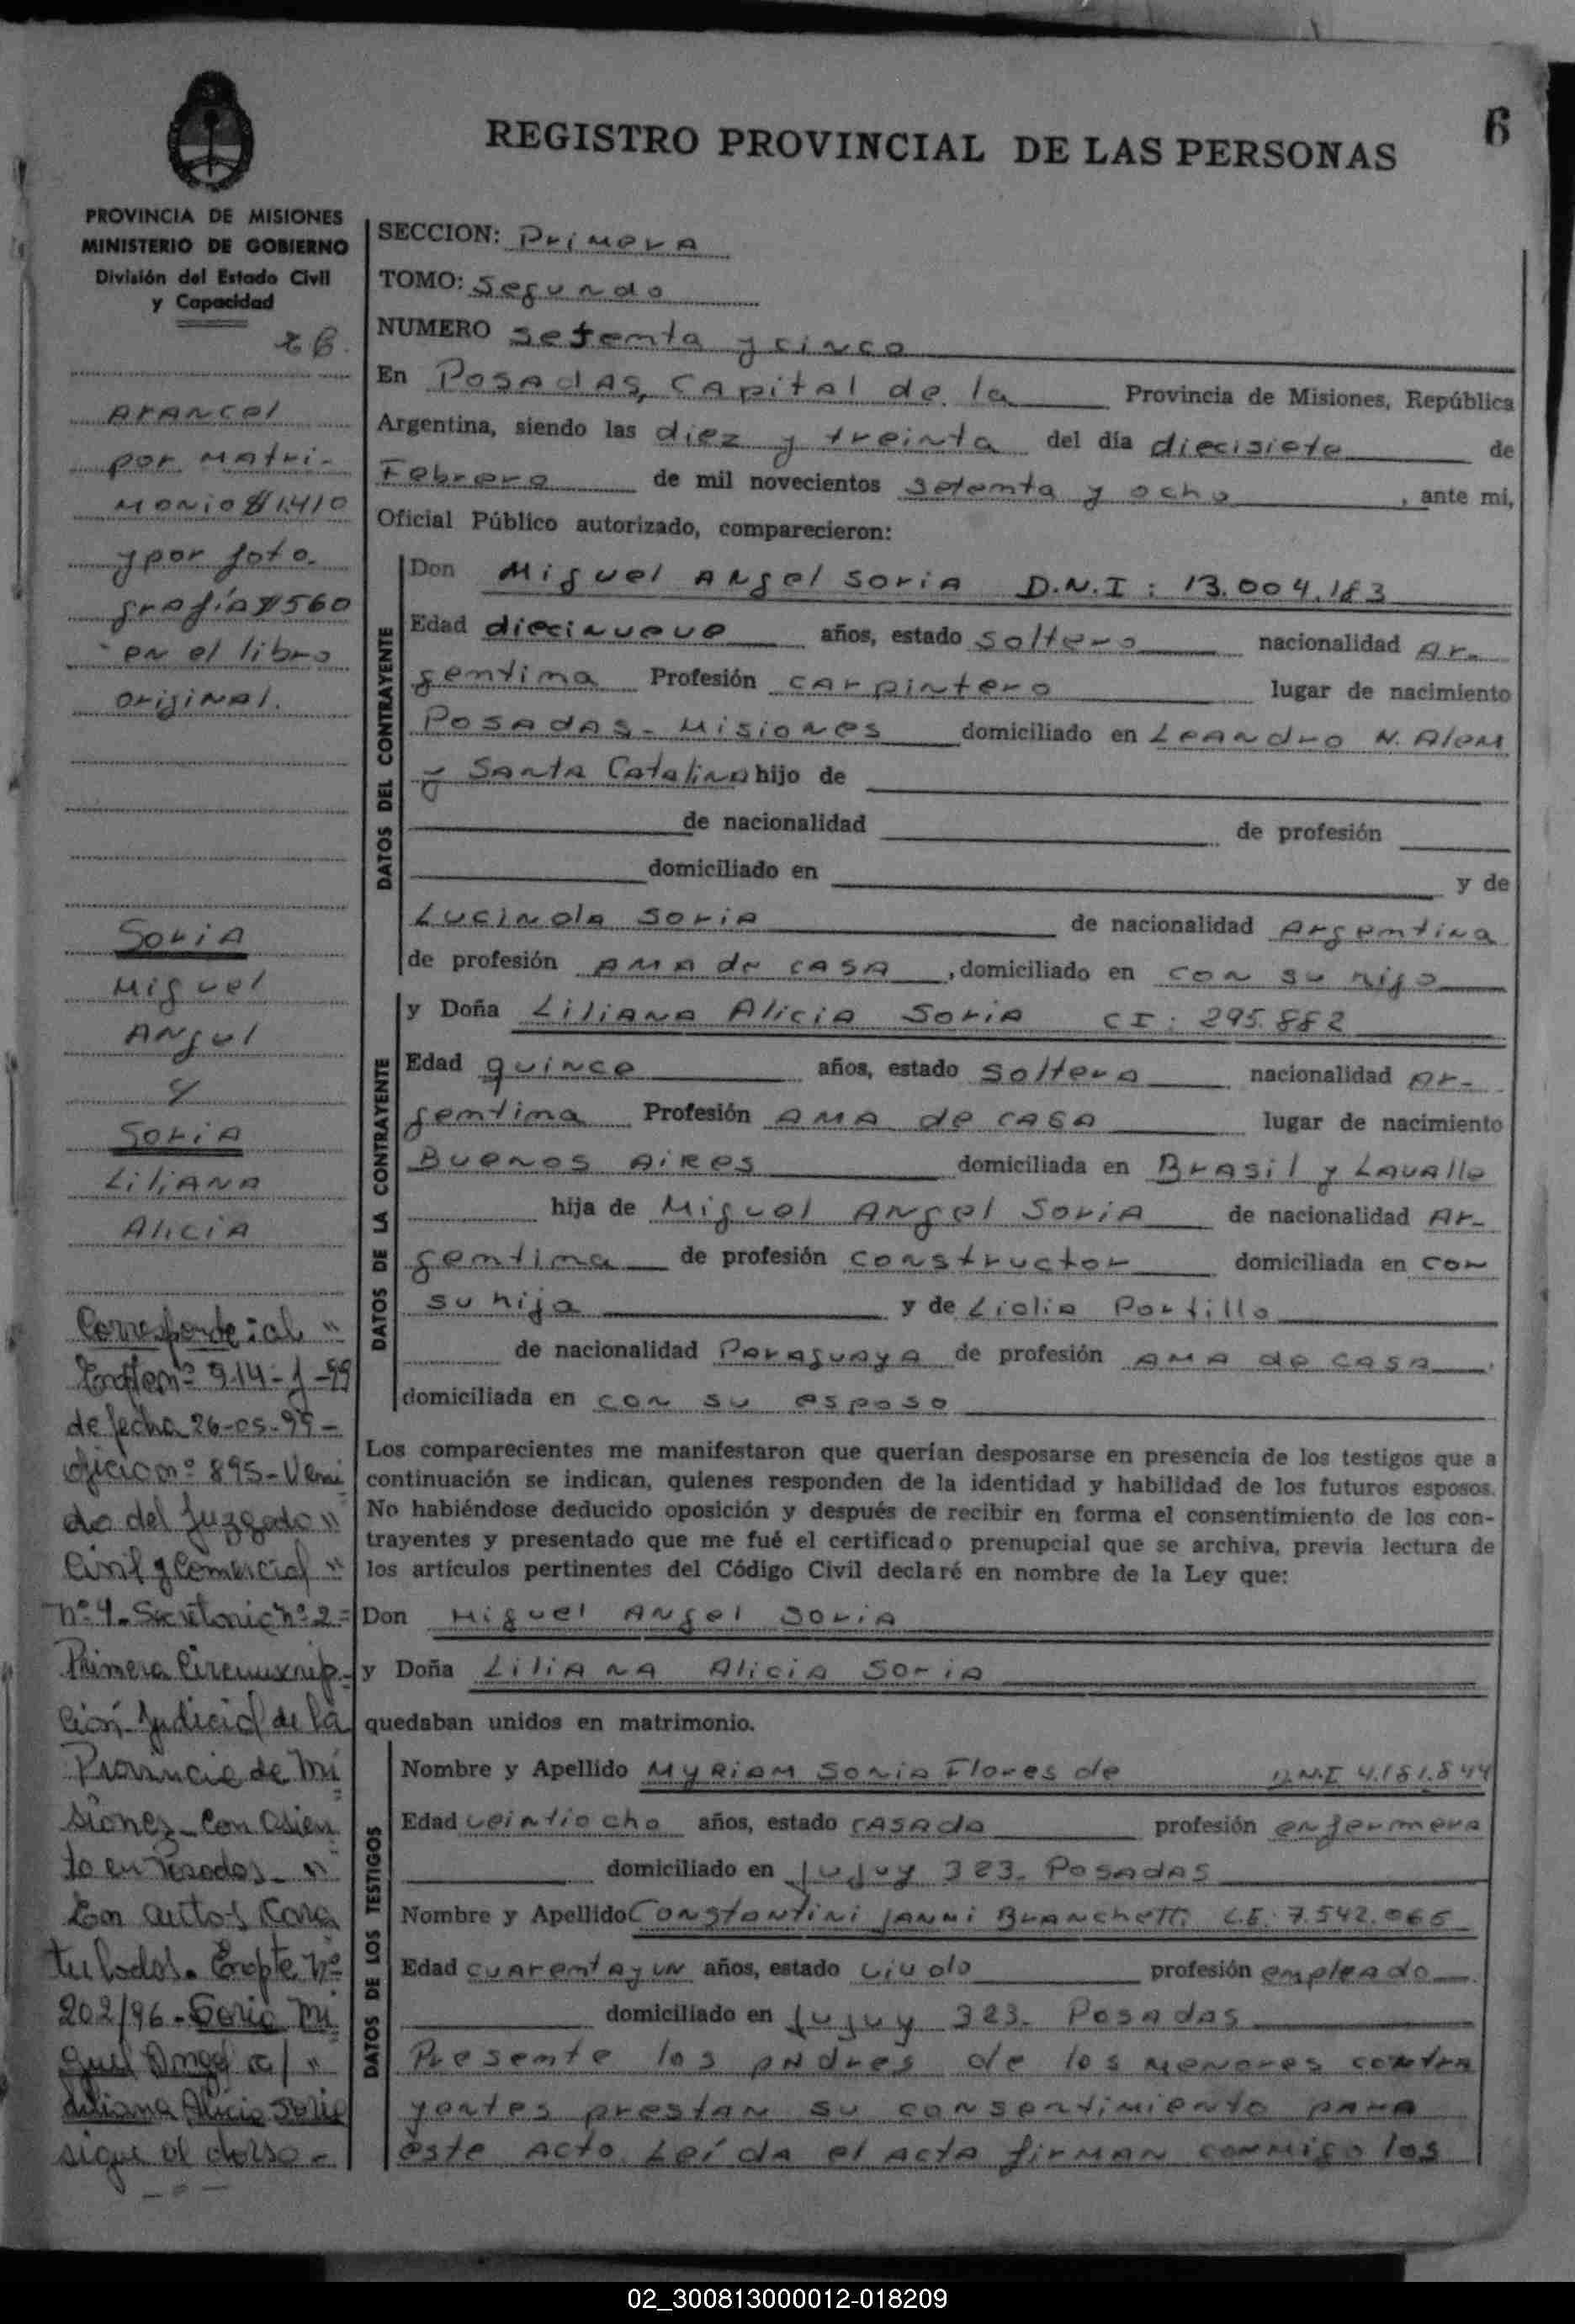 6
REGISTRO PROVINCIAL DE LAS PERSONAS
PROVINCIA DE MISIONES
MINISTERIO DE GOBIERNO
División del Estado Civil
y Capacidad
Arancel
por matri-
monio $1.410
y por foto-
grafía $560
en el libro
original.
Soria
Miguel
Angel
y
Soria
Liliana
Alicia
Corresponde: al "
Expte nº 914-J-99
de fecha 26-05-99-
oficio nº 895-Veni
do del Juzgado "
Civil y Comercial "
nº 4-Secretaria nº 2=
Primera Circunscrip-
ción Judicial de la
Provincia de Mi
siones-con asien
to en Posadas- "
En autos Cara
tulados. Expte nº
202/96-Soria Mi
guel Angel c/ "
Liliana Alicia Soria
sigue al dorso-
SECCION: Primera
TOMO: Segundo
NUMERO setenta y cinco
En Posadas, Capital de la Provincia de Misiones, República
Argentina, siendo las diez y treinta del día diecisiete de
Febrero de mil novecientos setenta y ocho, ante mi,
Oficial Público autorizado, comparecieron:
DATOS DEL CONTRAYENTE
Don Miguel Angel Soria D.N.I: 13.004.183
Edad diecinueve años, estado soltero nacionalidad Ar-
gentina Profesión carpintero lugar de nacimiento
Posadas-Misiones domiciliado en Leandro N. Alem
y Santa Catalina hijo de
de nacionalidad de profesión
domiciliado en y de
Lucinda Soria de nacionalidad Argentina
de profesión Ama de casa, domiciliado en con su hijo
DATOS DE LA CONTRAYENTE
y Doña Liliana Alicia Soria CI: 295.882
Edad quince años, estado soltera nacionalidad Ar-
gentina Profesión Ama de casa lugar de nacimiento
Buenos Aires domiciliada en Brasil y Lavalle
hija de Miguel Angel Soria de nacionalidad Ar-
gentina de profesión constructor domiciliada en con
su hija y de Lidia Portillo
de nacionalidad Paraguaya de profesión Ama de casa,
domiciliada en con su esposo
Los comparecientes me manifestaron que querían desposarse en presencia de los testigos que a
continuación se indican, quienes responden de la identidad y habilidad de los futuros esposos.
No habiéndose deducido oposición y después de recibir en forma el consentimiento de los con-
trayentes y presentado que me fué el certificado prenupcial que se archiva, previa lectura de
los artículos pertinentes del Código Civil declaré en nombre de la Ley que:
Don Miguel Angel Soria
y Doña Liliana Alicia Soria
quedaban unidos en matrimonio.
DATOS DE LOS TESTIGOS
Nombre y Apellido Myriam Sonia Flores de D.N.I 4.181.844
Edad veintiocho años, estado casada profesión enfermera
domiciliado en Jujuy 323-Posadas
Nombre y Apellido Constantini Ianni Blanchetti L.E: 7.542.066
Edad cuarenta y un años, estado viudo profesión empleado
domiciliado en Jujuy 323-Posadas
Presente los padres de los menores contra
yentes prestan su consentimiento para
este acto. Leída el acta firman conmigo los
02_300813000012-018209